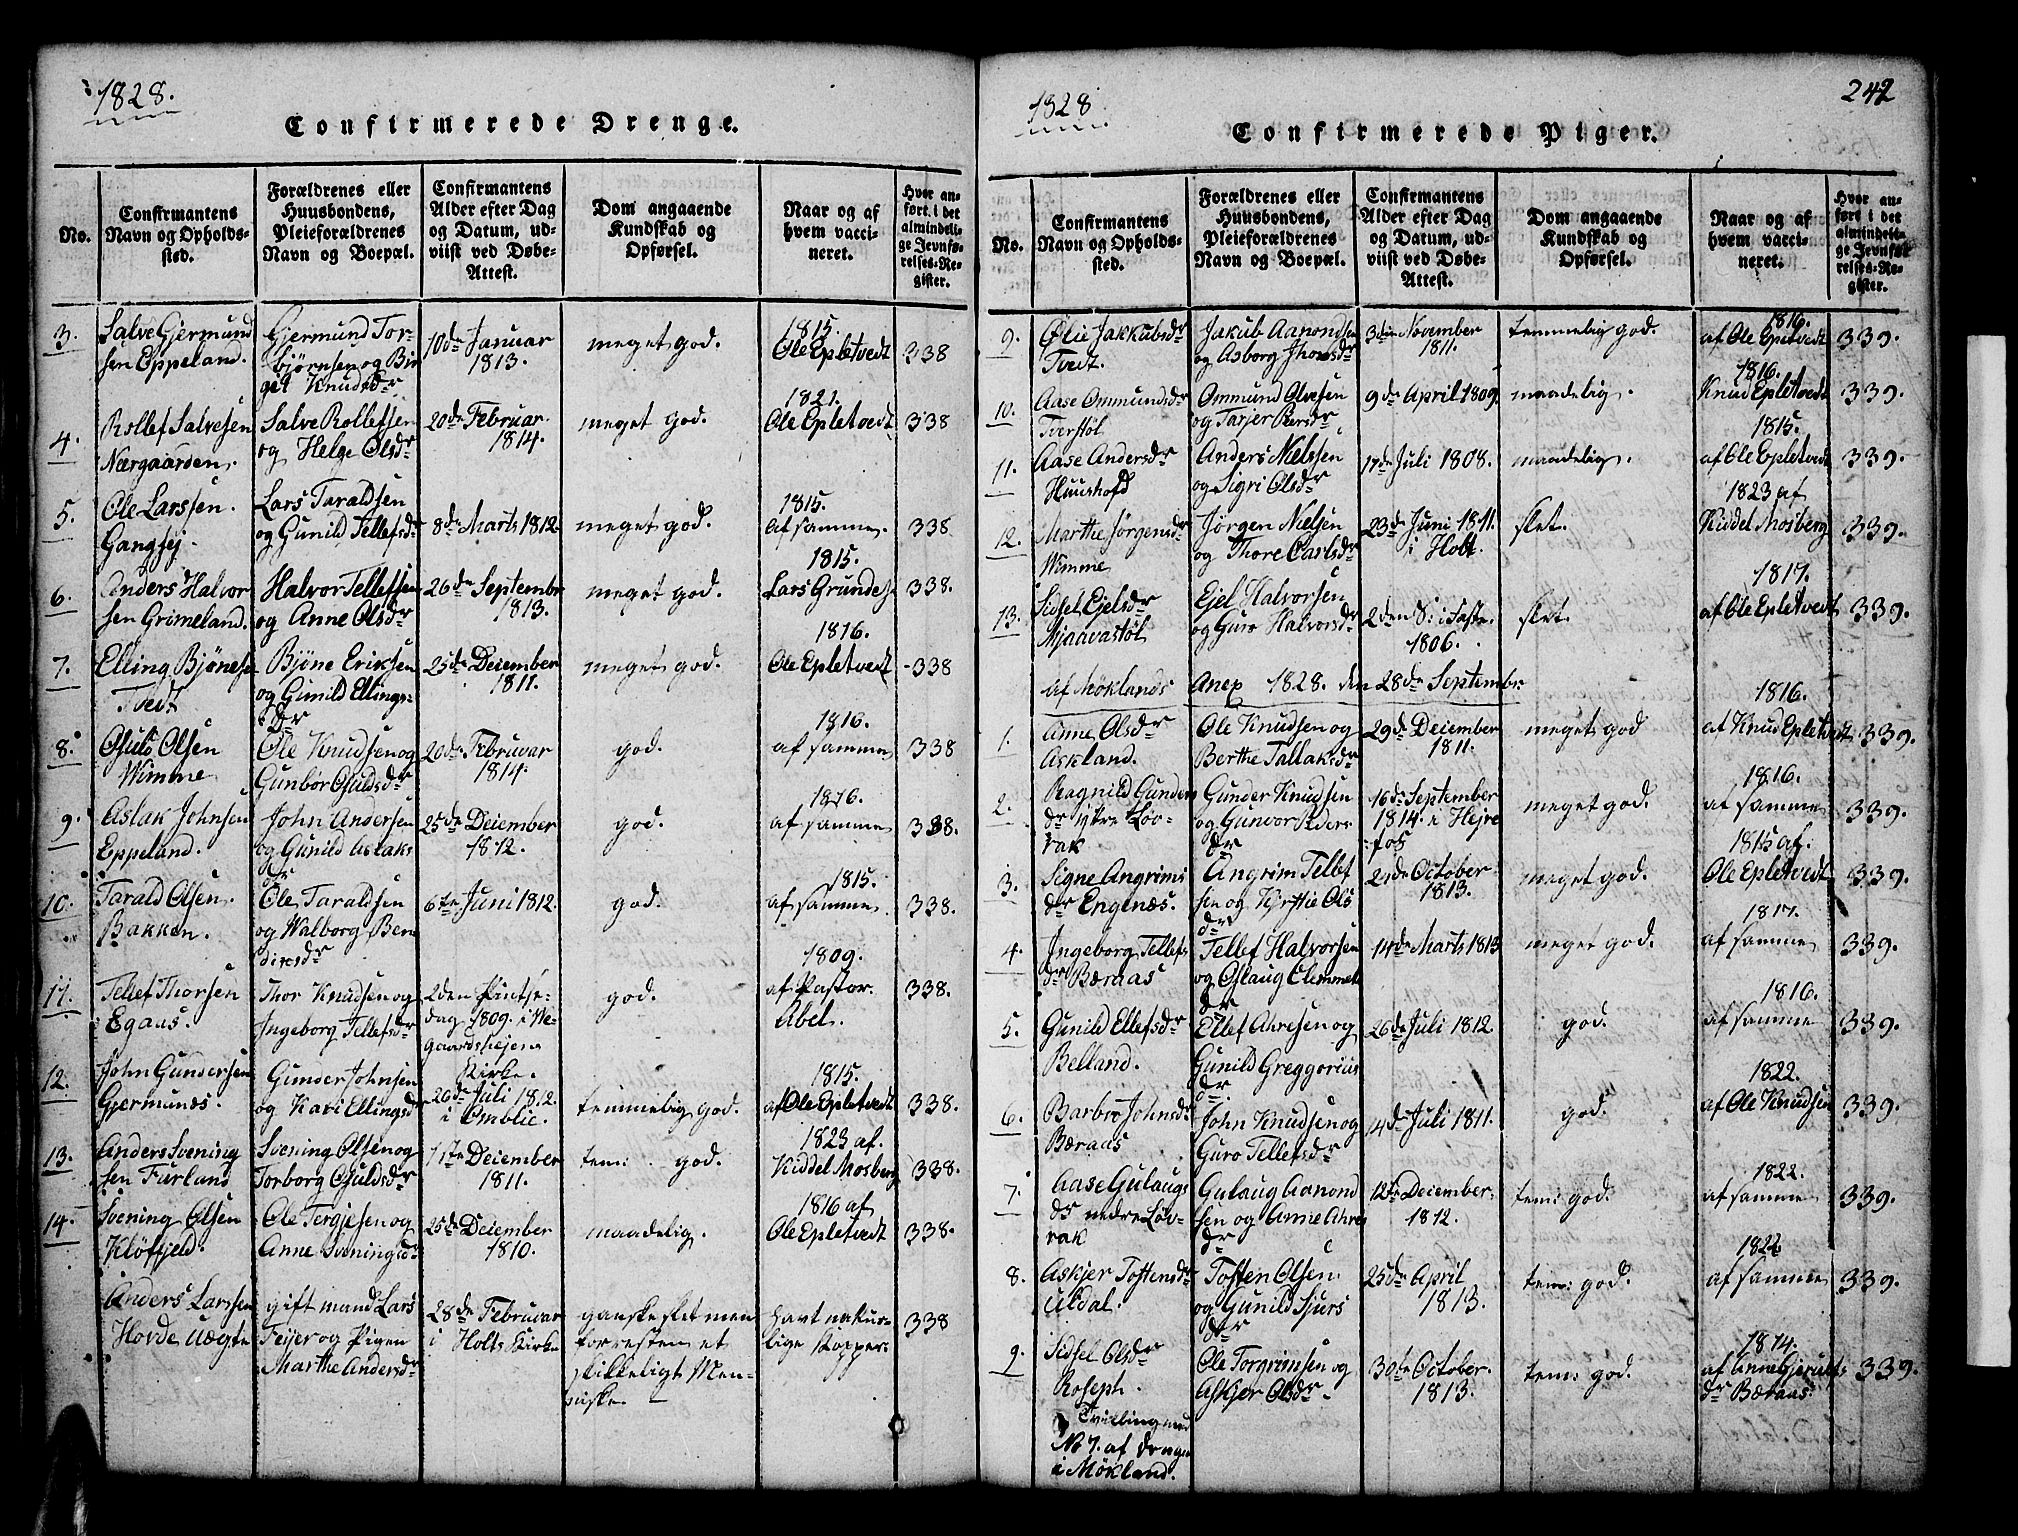 1828.
Confirmerede Drenge.
No.
Confirmantens Navn og Opholdssted.
Forældrenes eller Huusbondens, Pleieforældrenes Navn og Boepæl.
Confirmantens Alder efter Dag og Datum, udviist ved Døbe-Attest.
Dom angaaende Kundskab og Opførsel.
Naar og af hvem vaccineret.
Hvor anført i det almindelige Jevnførelses-Register.
3. Salve Gjermundsen Eppeland. Gjermund Torbjørnsen og Birgit Knudsdr 10de Januar 1813. meget god. 1815. Ole Epletvedt 338
4. Rollef Salvesen Nærgaarden. Salve Rollefsen og Helge Olsdr 20de Februar 1814. meget god. 1821. Ole Epletvedt 338
5. Ole Larssen Gangsej. Lars Taraldsen og Gunild Tellefsdr 8de Marts 1812. meget god. 1815. af samme. 338
6. Anders Halvorsen Grimeland. Halvor Tellefsen og Anne Olsdr 26de Septembr 1813. meget god. 1815. Lars Grundes 338.
7. Elling Bjønesen Tvedt Bjøne Eriksen og Gunild Ellingsdr 25de Deiember 1811. meget god. 1816. Ole Epletvedt 338
8. Osuld Olsen Wimme Ole Knudsen og Gunbør Osuldsdr 20de Februar 1814. god. 1816. af samme 338
9. Aslak Johnsen Eppeland. John Andersen og Gunild Aslaksdr 25de Deiember 1812. god. 1816. af samme 338.
10. Tarald Olsen Bakken. Ole Taraldsen og Walborg Bendixsdr 6te Juni 1812. god. 1815. af samme. 338.
11. Tellef Thorsen Egaas. Thor Knudsen og Ingeborg Tellefsdr 2den Pintsedag 1809. i Wegaardshejens Kirke. god. 1809. af Pastor Abel. 338.
12. John Gundersen Gjermunes. Gunder Johnsen og Kari Ellingsd 26de Juli 1812. i Omblie. temmelig god. 1815. af Ole Epletvedt 338.
13. Anders Sveningsen Furland Svening Olsen og Torborg Osuldsdr 1ste Deiember 1811. tem: god. 1823 af. Kiddel Mosberg 338.
14. Svening Olsen Kløfjeld. Ole Tergjesen og Anne Sveningsd. 25de Deiember 1810. maadelig. 1816 af Ole Epletvedt 338.
Anders Larssen Horde Uægte gift mand Lars Fejer og Pigen Marthe Andersdr 28de Februar i Holts Kirke ganske slet men forresten et skikkeligt Menniske. havt naturlige Kopper 338
1828
242
Confirmerede Piger.
No.
Confirmantens Navn og Opholdssted.
Forældrenes eller Huusbondens, Pleieforældrenes Navn og Boepæl.
Confirmantens Alder efter Dag og Datum, udviist ved Døbe-Attest.
Dom angaaende Kundskab og Opførsel.
Naar og af hvem vaccineret.
Hvor anført i det almindelige Jevnførelses-Register.
9. Olie Jakkubsdr Tvedt. Jakub Aanondsen og Asborg Jhonsdr 3die November 1811. temmelig god. 1816. af Ole Epletvedt 339.
10. Aase Ommundsdr Tverstøl Ommund Olvesen og Tarjer Peersdr 9de April 1809. maadelig. 1816. Knud Epletvedt 339.
11. Aase Andersdr Huushofd Anders Nielssen og Sigri Olsdr 17de Juli 1808. maadelig. 1815. af Ole Epletvedt 339.
12. Marthe Jørgensdr Wimme Jørgen Nielsen og Thore Carlsdr 23de Juni 1811. i Holt. slet. 1823 af Kiddel Mosberg 339.
13. Sidsel Ejelsdr Mjaavastøl Ejel Halvorsen og Guro Halvorsdr 2den S: i Faste. 1806. slet. 1817. af Ole Epletvedt 339.
af Møklands Anex 1828. den 28de Septembr.
1. Anne Olsdr Askland. Ole Knudsen og Berthe Tallaksdr 29de Deiember 1811. meget god 1816. af Knud Epletvedt 339.
2. Ragnild Gundersdr ytre Løvrak Gunder Knudsen og Gunvor Pedersdr 16de September 1814. i Hejrefos meget god. 1816. af samme 339.
3. Signe Angrimsdr Engenæs. Angrim Tellefsen og Kirstie Olsdr 21de October 1813. meget god. 1815 af. Ole Epletvedt 339.
4. Ingeborg Tellefsdr Bæraas Tellef Halvorsen og Oslaug Clemmetsdr 14de Marts 1813 meget god. 1817. af samme 339.
5. Gunild Ellefsdr Belland. Ellef Ahresen og Gunild Greggoriusdr 26de Juli 1812 god. 1816. af samme 339.
6. Barbro Johnsdr Bæraas John Knudsen og Guro Tellefsdr 14de Juli 1811. god. 1822. af Ole Knudsen 339.
7. Aase Gulaugsdr nedre Løvrak Gulaug Aanondsen og Anne Ahresdr 12te Deiember 1812. tem: god. 1822. af samme 339.
8. Askjer Tostensdr Uldal. Tosten Olsen og Gunild Sjursdr 25de April 1813. tem: god. 1822 af samme 339.
9. Sidsel Olsdr Roseph. Ole Torgrimsen og Askjer Olsdr 30te October. 1813. tem: god. 1814. af Anne Gjerulfsdr Bæraas 339.
Tvilling med No 7. af drenge i Møkland.